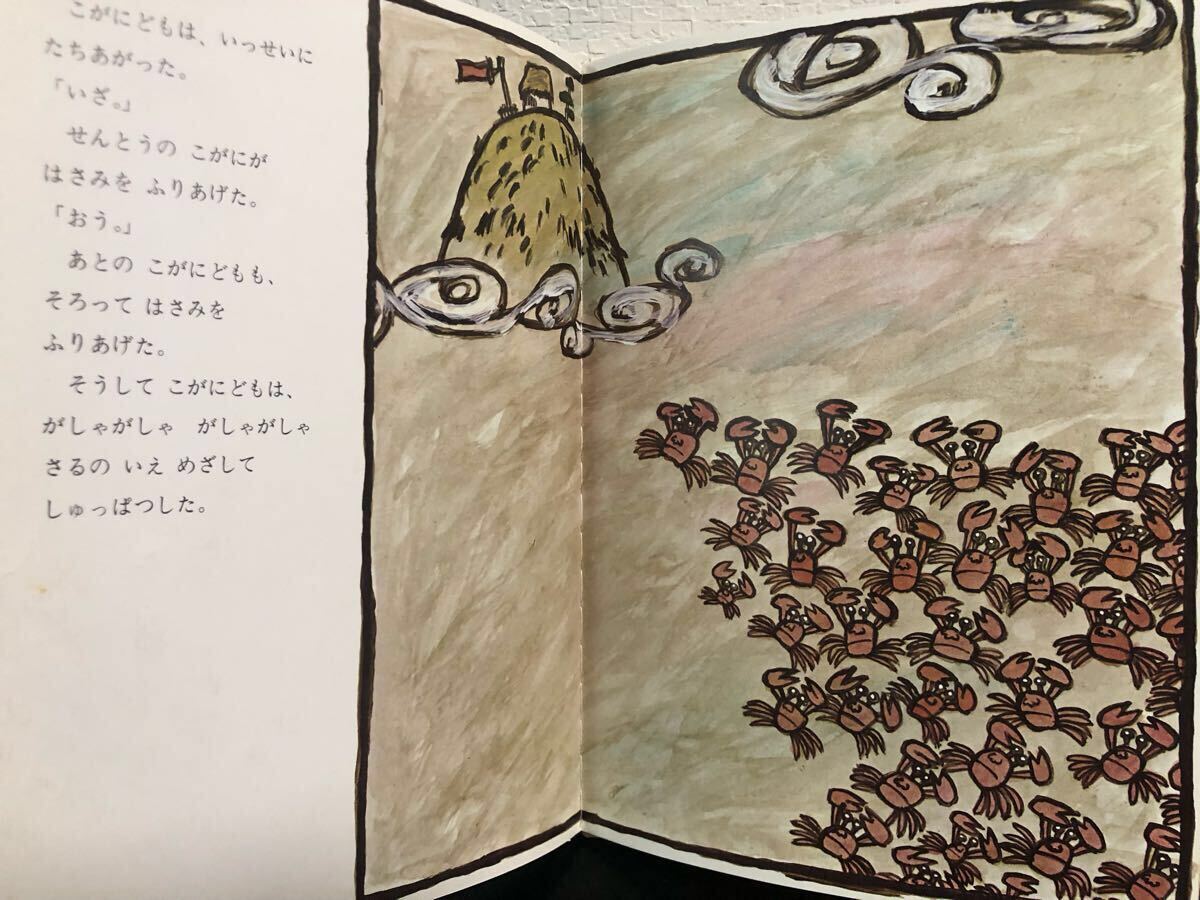 こがにどもは、いっせいに
たちあがった。
「いざ。」
せんとうの こがにが
はさみを ふりあげた。
「おう。」
あとの こがにどもも、
そろって はさみを
ふりあげた。
そうして こがにどもは、
がしゃがしゃ がしゃがしゃ
さるの いえ めざして
しゅっぱつした。